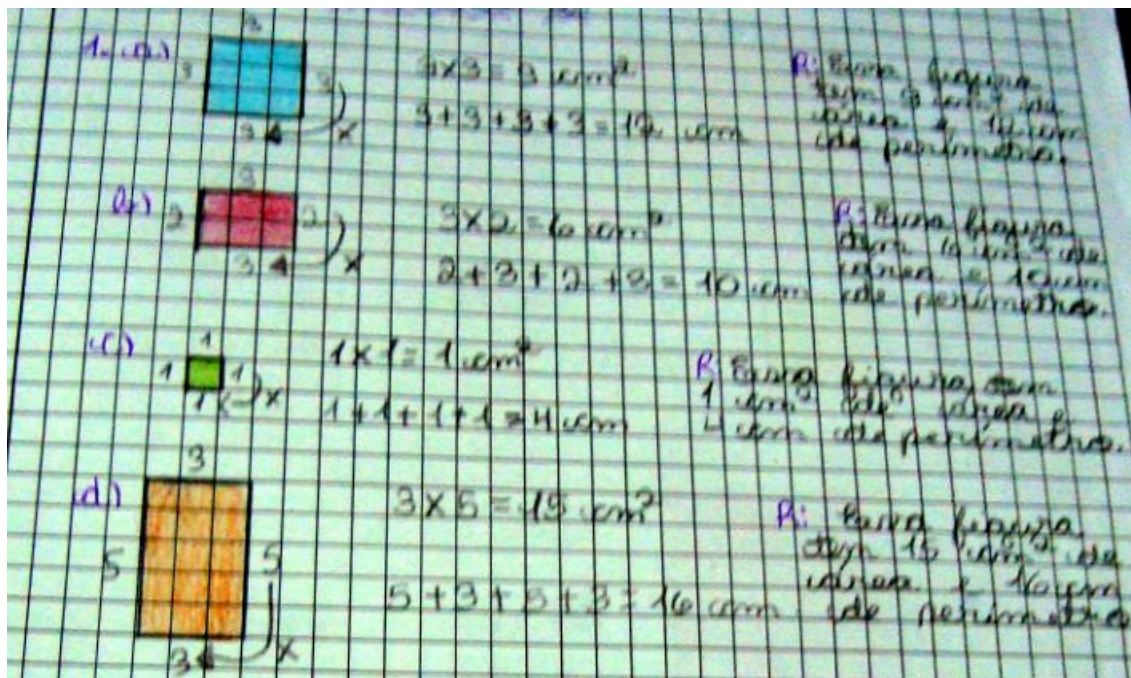 1. a)
3
3 3
3 x
3x3 = 9 cm²
3+3+3+3 = 12 cm
R: Essa figura
tem 9 cm² de
área e 12 cm
de perímetro.
b)
3
2 2
3 x
3x2 = 6 cm²
2+3+2+3 = 10 cm
R: Essa figura
tem 6 cm² de
área e 10 cm
de perímetro.
c)
1
1 1
1 x
1x1 = 1 cm²
1+1+1+1 = 4 cm
R: Essa figura tem
1 cm² de área e
4 cm de perímetro.
d)
3
5 5
3 x
3x5 = 15 cm²
5+3+5+3 = 16 cm
R: Essa figura
tem 15 cm² de
área e 16 cm
de perímetro